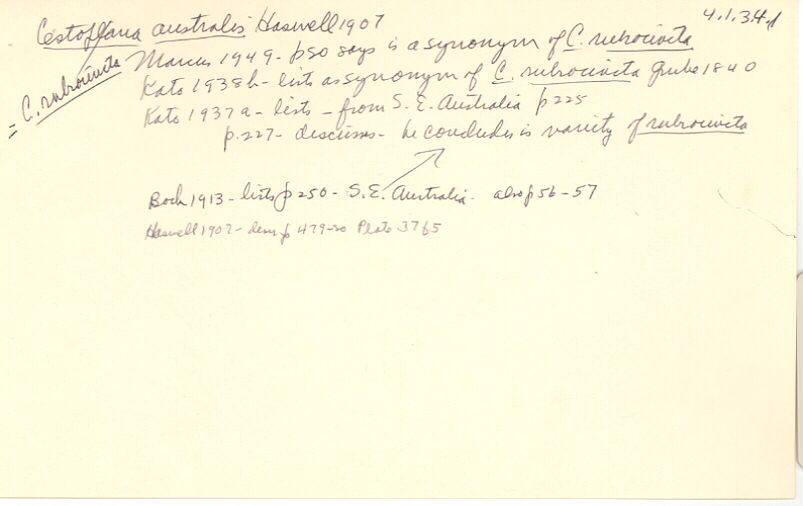 Cestoplana australis Haswell 1907
4.1.34.1
= C. rubrocincta
Marcus 1949 - p80 says is a synonym of C. rubrocincta
Kato 1938b - lists as synonym of C. rubrocincta Grube 1840
Kato 1937a - lists - from S. E. Australia p225
p.227 - discusses - he concludes is variety of rubrocincta
Bock 1913 - lists p250 - S.E. Australia - also p56-57
Haswell 1907 - p 479-80 Plate 37